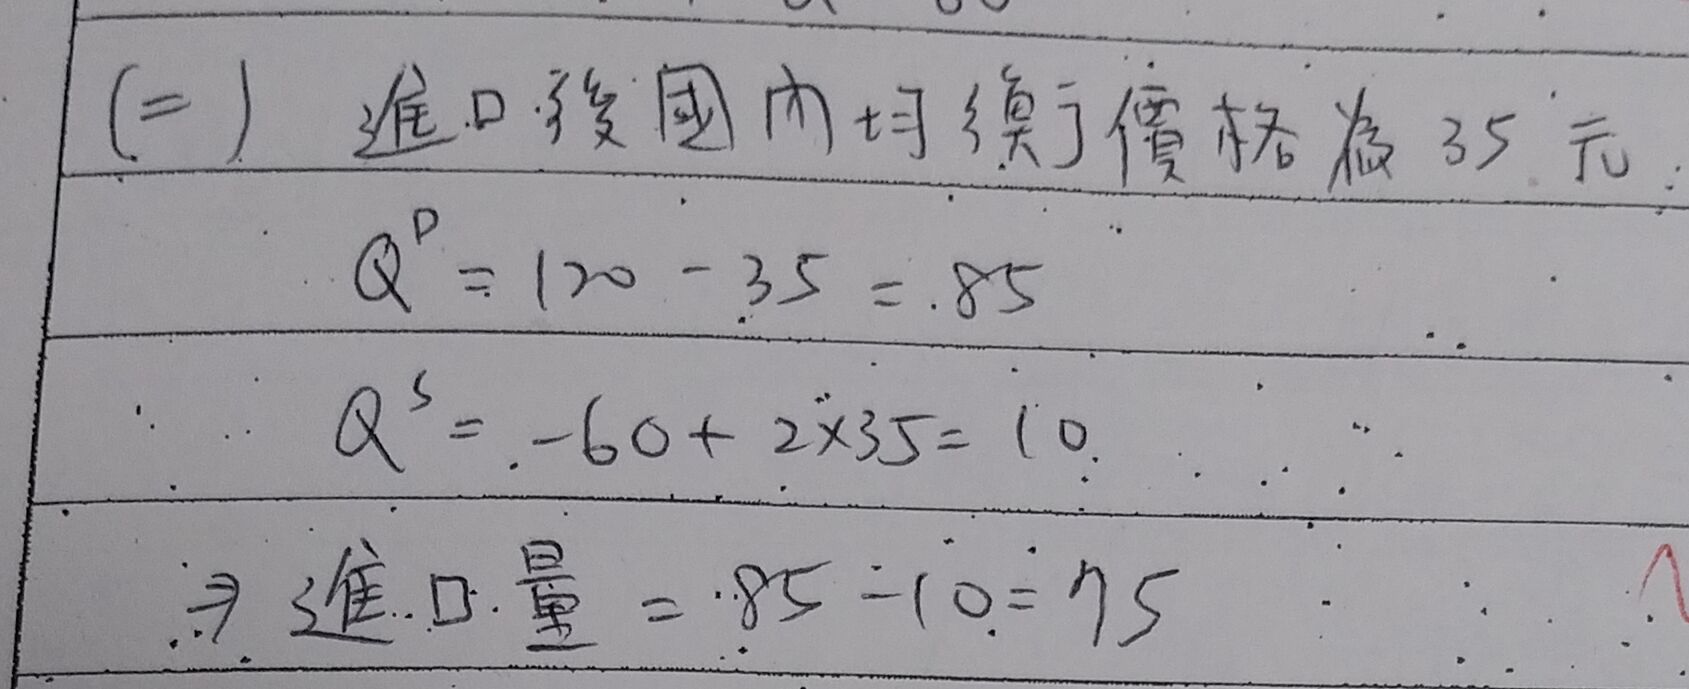 (二) 進口後國內均衡價格為35元
Q^D = 120 - 35 = 85
Q^S = -60 + 2×35 = 10
⇒ 進口量 = 85 - 10 = 75